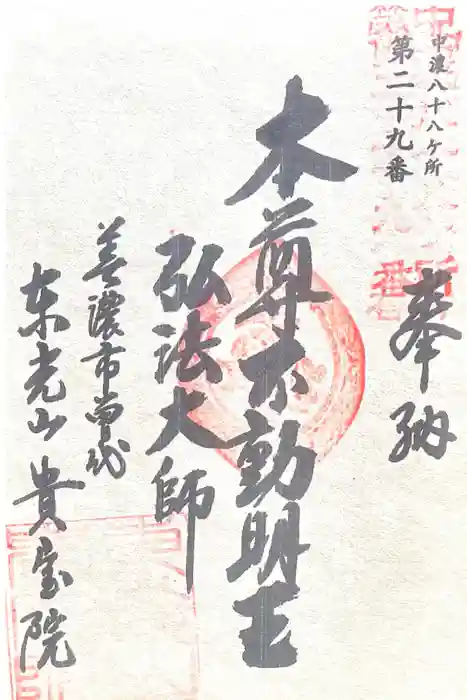 中濃八十八ケ所
第二十九番
奉納
本尊不動明王
弘法大師
美濃市常代
東光山貴宝院